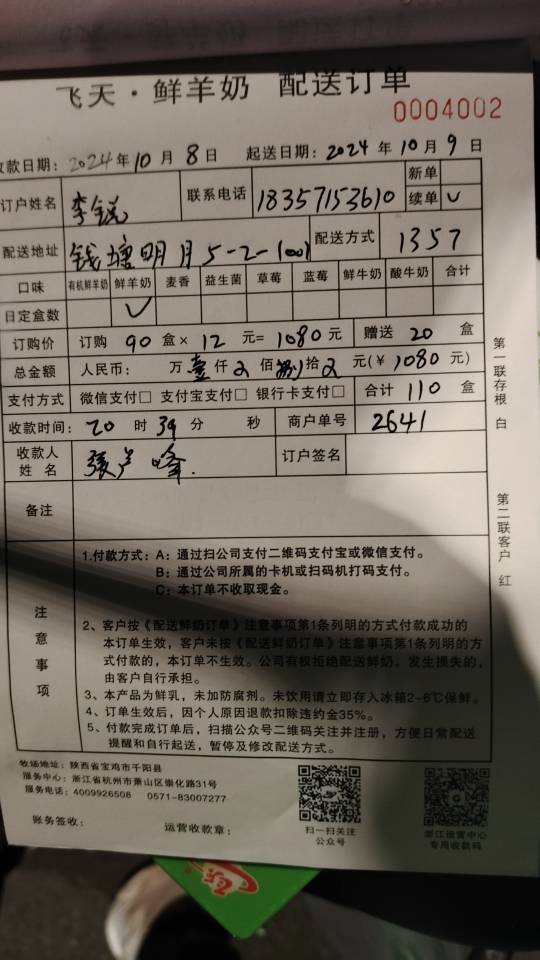 飞天·鲜羊奶 配送订单
0004002
收款日期: 2024年10月8日 起送日期: 2024年10月9日
订户姓名 李锐 联系电话 18357153610 新单
续单 √
配送地址 钱塘明月5-2-1001 配送方式 1357
口味 有机鲜羊奶 鲜羊奶 麦香 益生菌 草莓 蓝莓 鲜牛奶 酸牛奶 合计
日定盒数 √
订购价 订购 90 盒× 12 元= 1080 元 赠送 20 盒
总金额 人民币: 万 壹 仟 0 佰 捌 拾 0 元(¥ 1080 元)
支付方式 微信支付□ 支付宝支付□ 银行卡支付□ 合计 110 盒
收款时间: 20 时 39 分 秒 商户单号 2641
收款人姓名 張卢峰. 订户签名
备注
注意事项
1.付款方式: A: 通过扫公司支付二维码支付宝或微信支付。
B: 通过公司所属的卡机或扫码机打码支付。
C: 本订单不收取现金。
2、客户按《配送鲜奶订单》注意事项第1条列明的方式付款成功的
本订单生效，客户未按《配送鲜奶订单》注意事项第1条列明的方
式付款的，本订单不生效。公司有权拒绝配送鲜奶，发生损失的，
由客户自行承担。
3、本产品为鲜乳，未加防腐剂。未饮用请立即存入冰箱2-6℃保鲜。
4、订单生效后，因个人原因退款扣除违约金35%。
5、付款完成订单后，扫描公众号二维码关注并注册，方便日常配送
提醒和自行起送，暂停及修改配送方式。
牧场地址: 陕西省宝鸡市千阳县
服务中心: 浙江省杭州市萧山区崇化路31号
服务电话: 4009926508 0571-83007277
账务签收: 运营收款章:
扫一扫关注
公众号
浙江运营中心
专用收款码
第一联存根 白
第二联客户 红